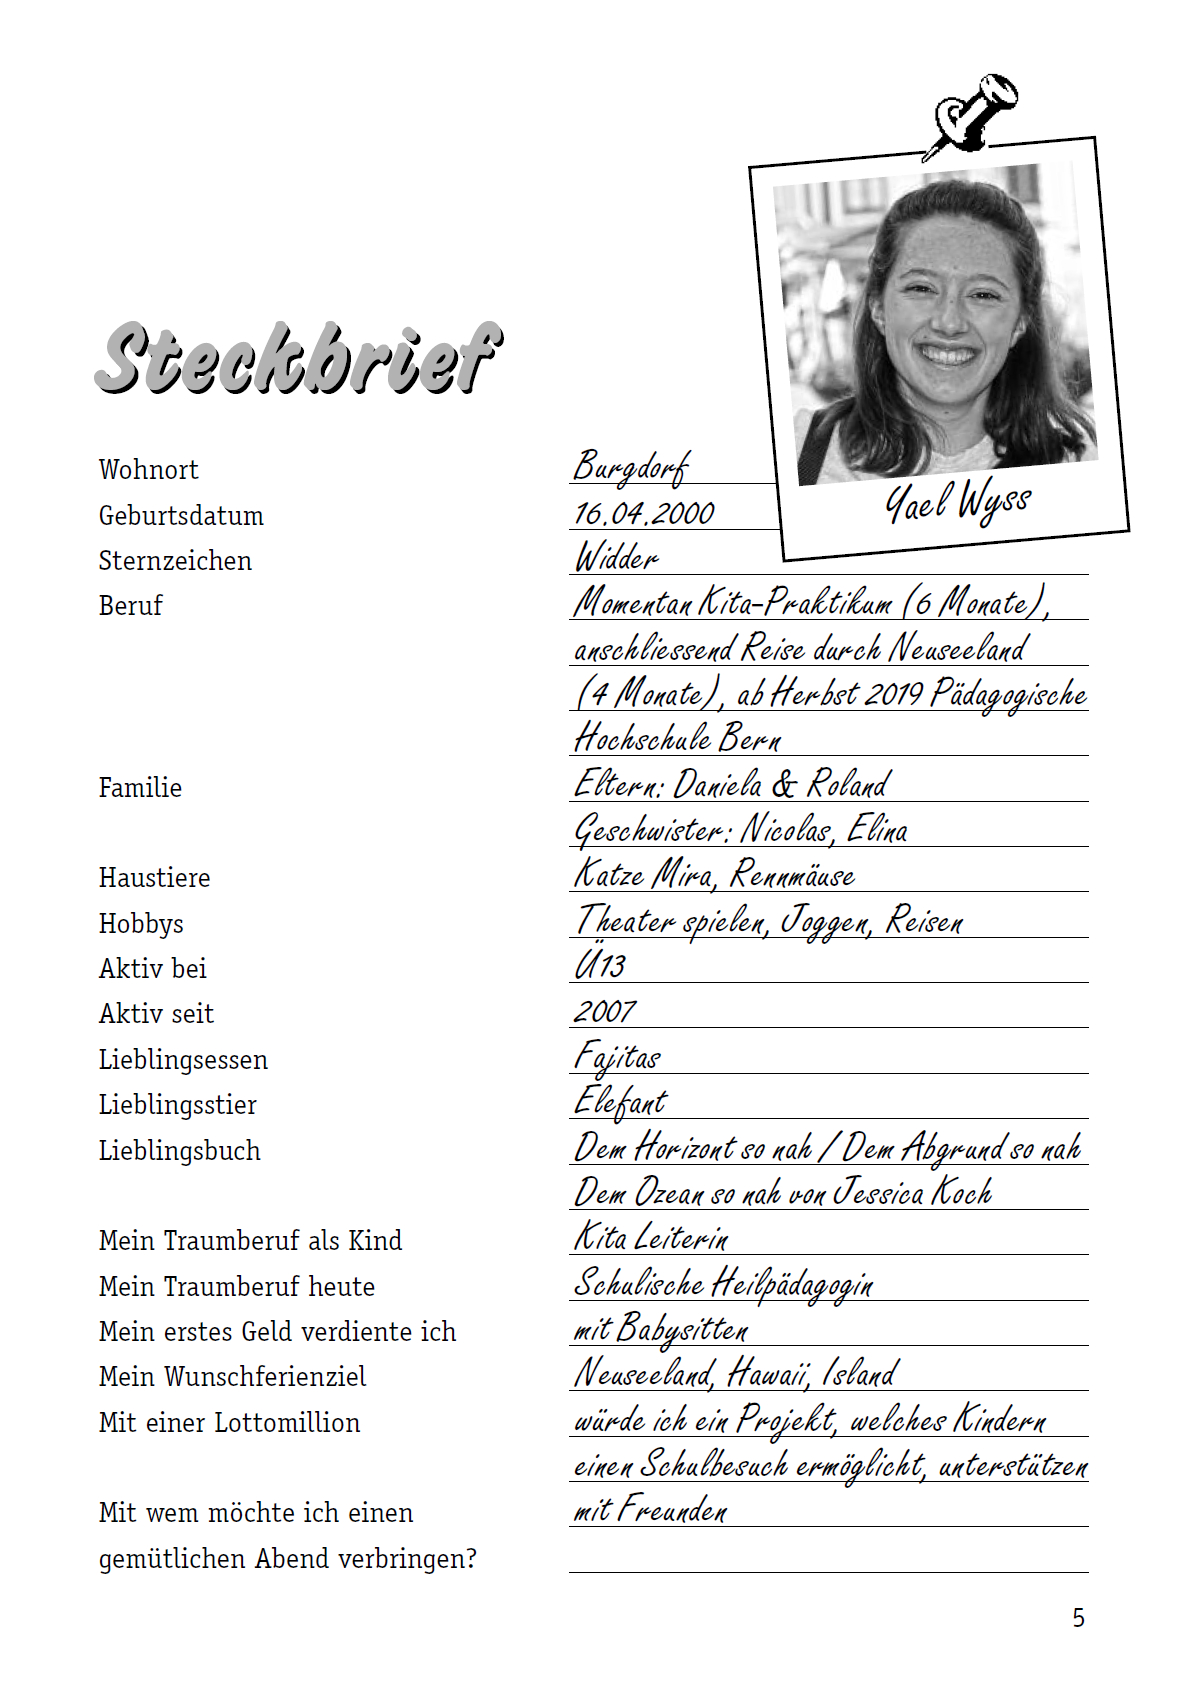 Yael Wyss
Steckbrief
Wohnort Burgdorf
Geburtsdatum 16.04.2000
Sternzeichen Widder
Beruf Momentan Kita-Praktikum (6 Monate),
anschliessend Reise durch Neuseeland
(4 Monate), ab Herbst 2019 Pädagogische
Hochschule Bern
Familie Eltern: Daniela & Roland
Geschwister: Nicolas, Elina
Haustiere Katze Mira, Rennmäuse
Hobbys Theater spielen, Joggen, Reisen
Aktiv bei Ü13
Aktiv seit 2007
Lieblingsessen Fajitas
Lieblingsstier Elefant
Lieblingsbuch Dem Horizont so nah / Dem Abgrund so nah
Dem Ozean so nah von Jessica Koch
Mein Traumberuf als Kind Kita Leiterin
Mein Traumberuf heute Schulische Heilpädagogin
Mein erstes Geld verdiente ich mit Babysitten
Mein Wunschferienziel Neuseeland, Hawaii, Island
Mit einer Lottomillion würde ich ein Projekt, welches Kindern
einen Schulbesuch ermöglicht, unterstützen
Mit wem möchte ich einen mit Freunden
gemütlichen Abend verbringen?
5